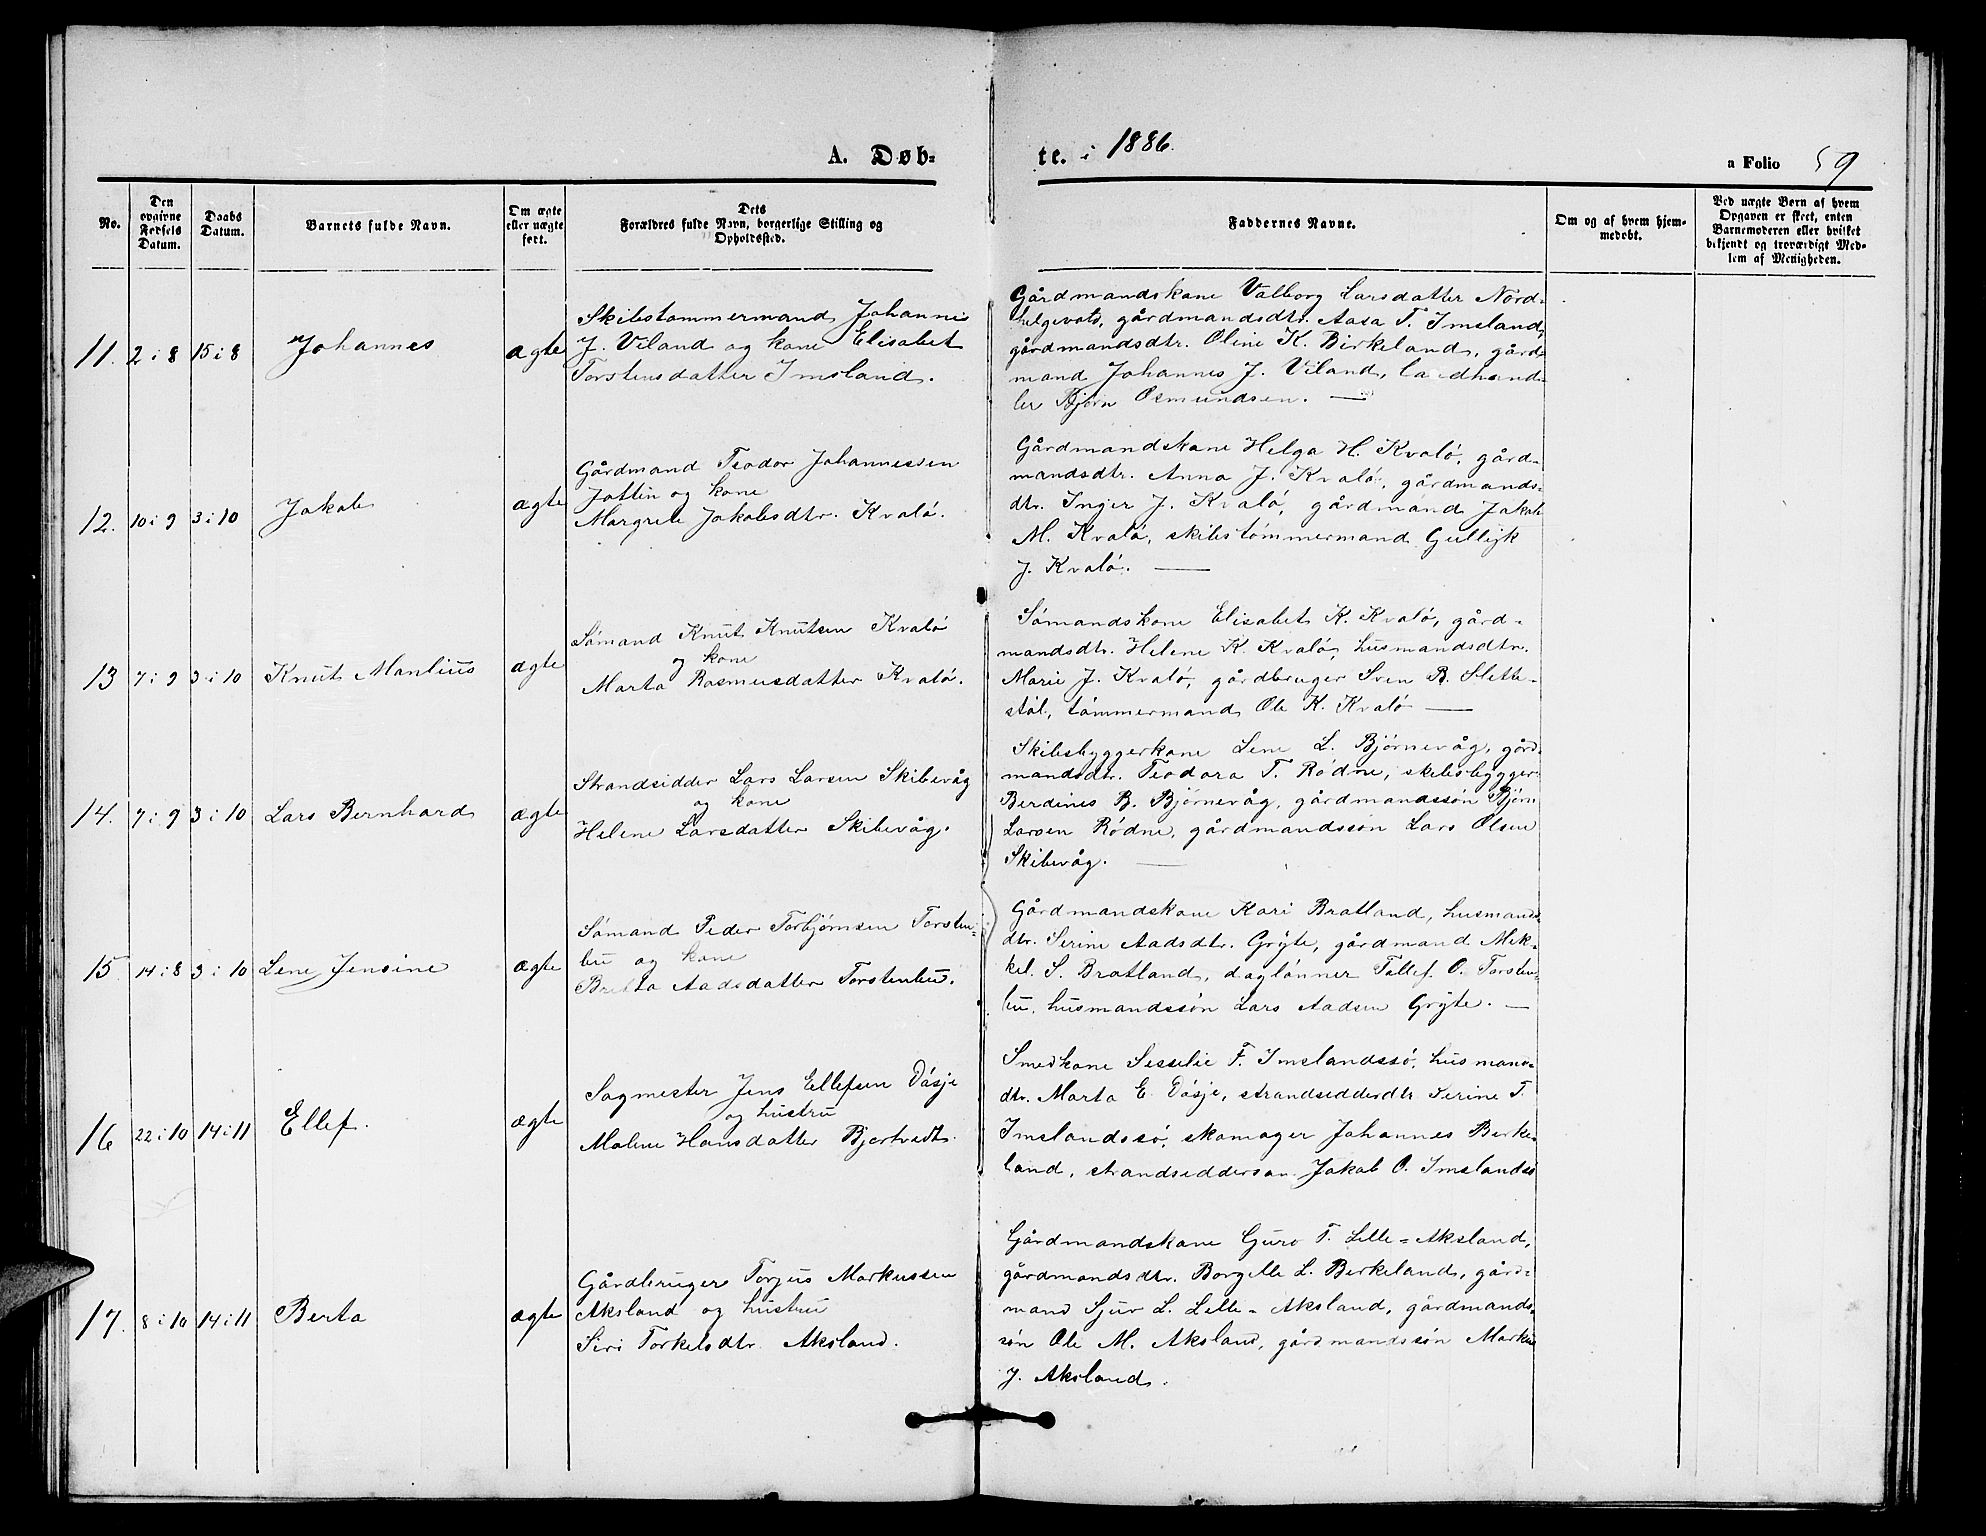 A. Døb-
te. i 1886.
a Folio 59
No.
Den opgivne Fødsels Datum.
Daabs Datum.
Barnets fulde Navn.
Om ægte eller uægte født.
Dets
Forældres fulde Navn, borgerlige Stilling og
Opholdssted.
Faddernes Navne.
Om og af hvem hjem-
medøbt.
Ved uægte Børn af hvem
Opgaven er skeet, enten
Barnemoderen eller hvilket
bekjendt og troværdigt Med-
lem af Menigheden.
11. 2 i 8 15 i 8 Johannes ægte
Skibstømmermand Johannes
J. Viland og kone Elisabet
Torstensdatter Imsland.
Gårdmandskone Valborg Larsdatter Nord-
helgevold, gårdmandsdtr. Aasa T. Imsland,
gårdmandsdtr. Oline K. Birkeland, gård-
mand Johannes J. Viland, landhand-
ler Bjørn Osmundsen. —
12. 10 i 9 3 i 10 Jakob ægte
Gårdmand Teodor Johannessen
Jottin og kone
Margrete Jakobsdtr. Kvalø.
Gårdmandskone Helga H. Kvalø, gård-
mandsdtr. Anna J. Kvalø, gårdmands-
dtr. Inger J. Kvalø, gårdmand Jakob
M. Kvalø, skibstømmermand Gullejk
J. Kvalø. —
13 7 i 9 3 i 10 Knut Manlius ægte
Sømand Knut Knutsen Kvalø
og kone
Marta Rasmusdatter Kvalø.
Sømandskone Elisabet K. Kvalø, gård-
mandsdtr. Helene K. Kvalø, husmandsdtr.
Marie J. Kvalø, gårdbruger Sven B. Slette-
støl, tømmermand Ole K. Kvalø —
14. 7 i 9 3 i 10 Lars Bernhard ægte
Strandsidder Lars Larsen Skibevåg
og kone
Helene Larsdatter Skibevåg.
Skibsbyggerkone Lene L. Bjørnevåg, gård-
mandsdtr. Teodora T. Rødne, skibsbygger
Berdines B. Bjørnevåg, gårdmandssøn Bjørn
Larsen Rødne, gårdmandssøn Lars Olsen
Skibevåg. —
15 14 i 8 3 i 10 Lene Jensine ægte
Sømand Peder Torbjørnsen Torsten-
bu og kone
Brita Aadsdatter Torstenbu.
Gårdmandskone Kari Bratland, husmands-
dtr. Serine Aadsdtr. Gryte, gårdmand Mik-
kel S. Bratland, dagløner Tollef O. Torsten-
bu, husmandssøn Lars Aadsen Gryte. —
16 22 i 10 14 i 11 Ellef. ægte
Sagmester Jens Ellefsen Døsje
og hustru
Malene Hansdatter Bjertvedt.
Smedkone Sesselie F. Imslandssø, husmands-
dtr. Marta E. Døsje, strandsidderdtr Serine T.
Imslandssø, skomager Johannes Birke-
land, strandsidderson Jakob O. Imslandssø
17. 8 i 10 14 i 11 Berta ægte
Gårdbruger Torjus Markussen
Aksland og hustru
Siri Torkelsdtr. Aksland.
Gårdmandskone Guro T. Lille-Aksland,
gårdmandsdtr. Borgille L. Birkeland, gård-
mand Sjur L. Lille-Aksland, gårdmands-
søn Ole M. Aksland, gårdmandssøn Markus
J. Aksland.